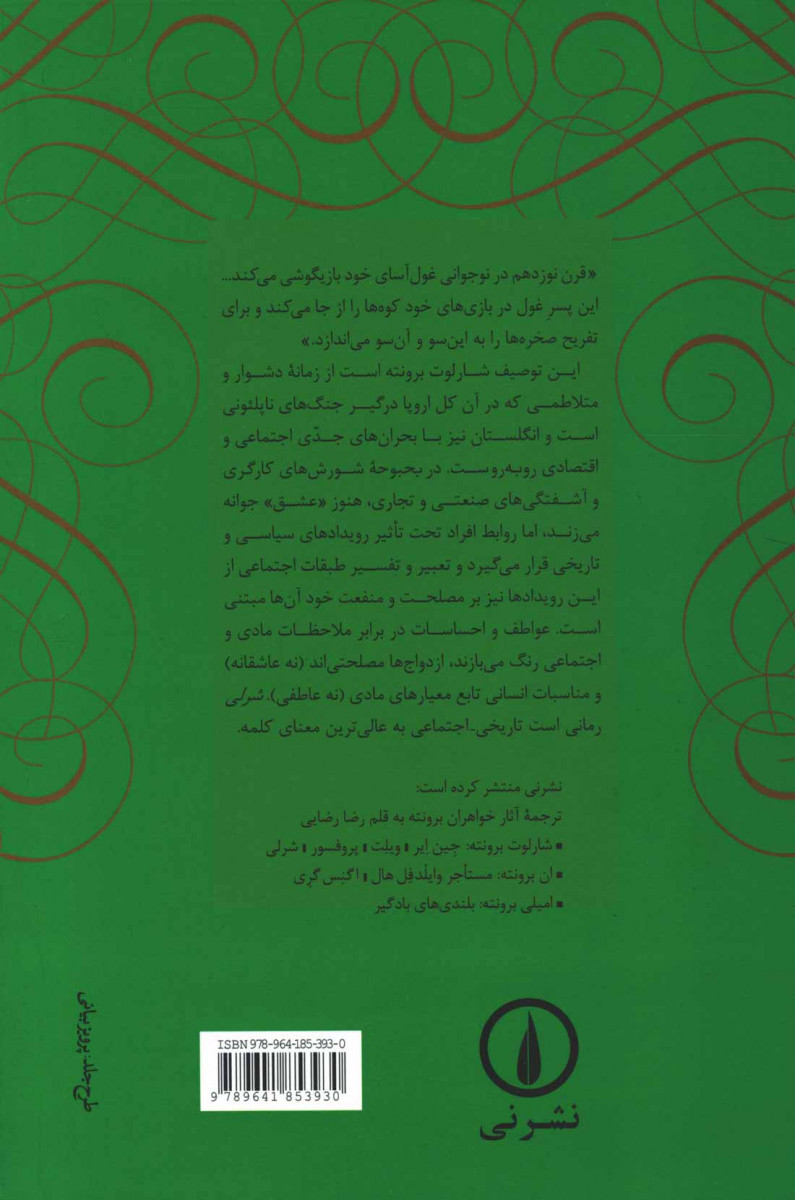 «قرن نوزدهم در نوجوانی غول‌آسای خود بازیگوشی می‌کند...
این پسرِ غول در بازی‌های خود کوه‌ها را از جا می‌کند و برای
تفریح صخره‌ها را به این‌سو و آن‌سو می‌اندازد.»
این توصیف شارلوت برونته است از زمانهٔ دشوار و
متلاطمی که در آن کل اروپا درگیر جنگ‌های ناپلئونی
است و انگلستان نیز با بحران‌های جدّی اجتماعی و
اقتصادی روبه‌روست. در بحبوحهٔ شورش‌های کارگری
و آشفتگی‌های صنعتی و تجاری، هنوز «عشق» جوانه
می‌زند، اما روابط افراد تحت تأثیر رویدادهای سیاسی و
تاریخی قرار می‌گیرد و تعبیر و تفسیر طبقات اجتماعی از
این رویدادها نیز بر مصلحت و منفعت خود آن‌ها مبتنی
است. عواطف و احساسات در برابر ملاحظات مادی و
اجتماعی رنگ می‌بازند، ازدواج‌ها مصلحتی‌اند (نه عاشقانه)
و مناسبات انسانی تابع معیارهای مادی (نه عاطفی). شرلی
رمانی است تاریخی-اجتماعی به عالی‌ترین معنای کلمه.
نشرنی منتشر کرده است:
ترجمهٔ آثار خواهران برونته به قلم رضا رضایی
▪ شارلوت برونته: جِین اِیر ، ویلِت ، پروفسور ، شرلی
▪ ان برونته: مستأجر وایلدفِل هال ، اَگنِس گرِی
▪ امیلی برونته: بلندی‌های بادگیر
طرح جلد: پرویز بیانی
ISBN 978-964-185-393-0
9 789641 853930
نشر نی